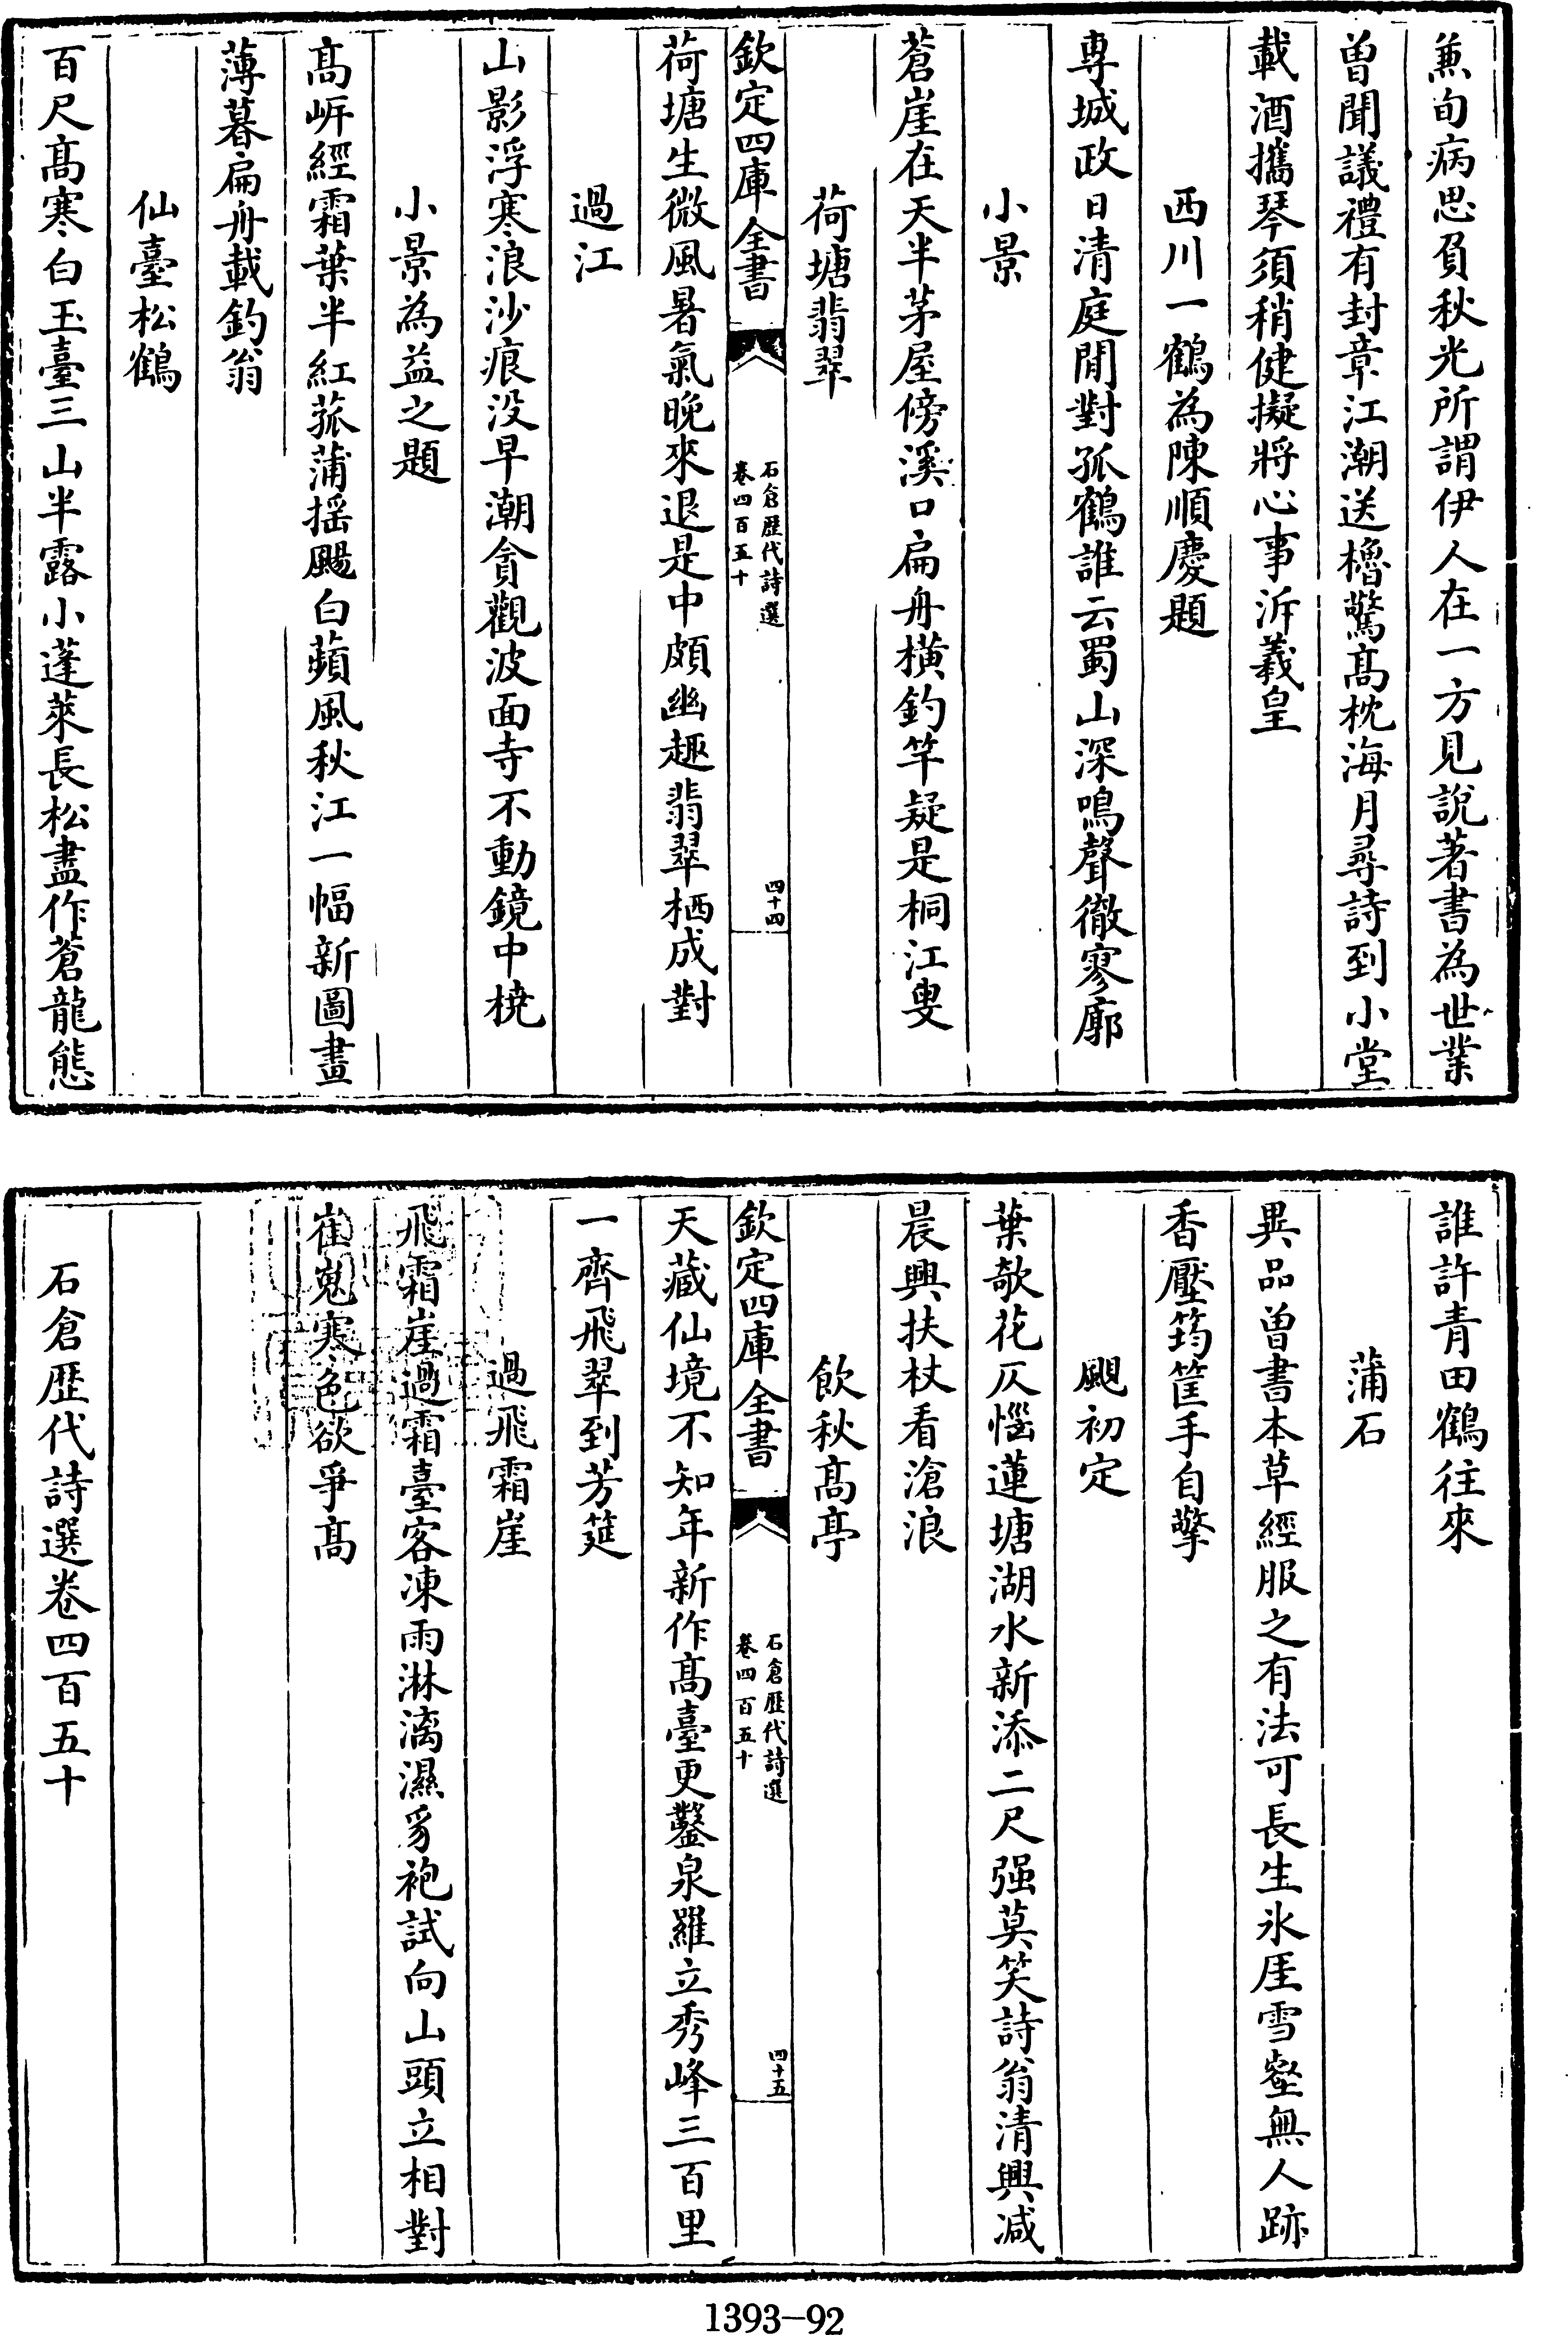 兼旬病思負秋光所謂伊人在一方見說著書為世業
曽聞議禮有封章江潮送櫓驚髙枕海月尋詩到小堂
載酒攜琴須稍健擬將心事泝羲皇
西川一鶴為陳順慶題
専城政日清庭閒對孤鶴誰云蜀山深鳴聲徹寥廓
小景
蒼崖在天半茅屋傍溪口扁舟横釣竿疑是桐江叟
荷塘翡翠
欽定四庫全書
石倉歴代詩選
卷四百五十
四十四
荷塘生微風暑氣晚來退是中頗幽趣翡翠栖成對
過江
山影浮寒浪沙痕没早潮貪觀波面寺不動鏡中橈
小景為益之題
髙岍經霜葉半紅菰蒲揺颺白蘋風秋江一幅新圖畫
薄暮扁舟載釣翁
仙臺松鶴
百尺髙寒白玉臺三山半露小蓬萊長松盡作蒼龍態
誰許青田鶴往來
蒲石
異品曽書本草經服之有法可長生氷厓雪壑無人跡
香壓筠筐手自擎
颶初定
葉欹花仄惱蓮塘湖水新添二尺强莫笑詩翁清興減
晨興扶杖看滄浪
飲秋髙亭
欽定四庫全書
石倉歴代詩選
卷四百五十
四十五
天藏仙境不知年新作髙臺更鑿泉羅立秀峰三百里
一齊飛翠到芳筵
過飛霜崖
飛霜崖過霜臺客凍雨淋漓濕豸袍試向山頭立相對
崔嵬寒色欲爭髙
石倉歴代詩選卷四百五十
1393-92